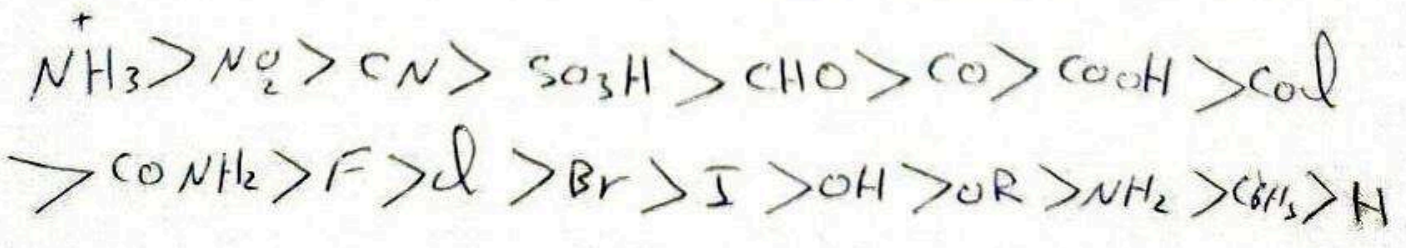 NH₃⁺ > NO₂ > CN > SO₃H > CHO > CO > COOH > COCl
> CONH₂ > F > Cl > Br > I > OH > OR > NH₂ > C₆H₅ > H